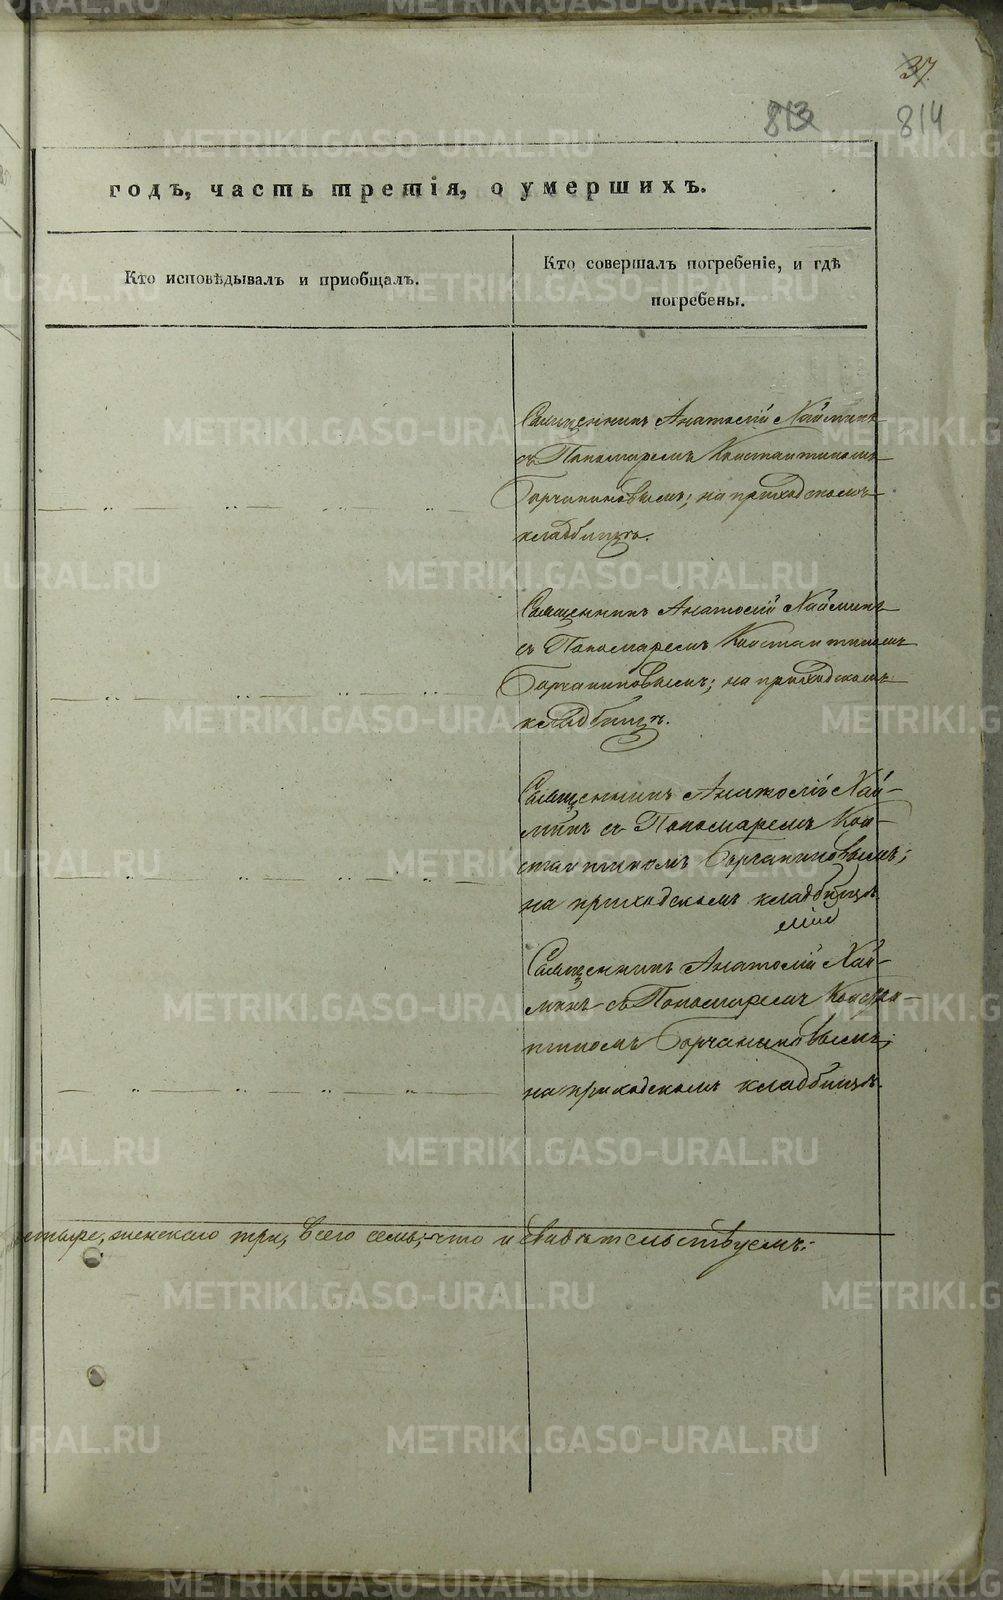 37.
813 814
годъ, часть третія, о умершихъ.
Кто исповѣдывалъ и приобщалъ.
Кто совершалъ погребеніе, и гдѣ
погребены.
Священникъ Анатолій Хайминъ
съ Пономаремъ Константиномъ
Горчаниновымъ; на приходскомъ
кладбищѣ.
Священникъ Анатолій Хайминъ
съ Пономаремъ Константиномъ
Горчаниновымъ; на приходскомъ
кладбищѣ.
Священникъ Анатолій Хай-
минъ съ Пономаремъ Кон-
стантиномъ Горчаниновымъ;
на приходскомъ кладбищѣ
Священникъ Анатолій Хай-
минъ съ Пономаремъ Констан-
тиномъ Горчаниновымъ;
на приходскомъ кладбищѣ.
етыре, женскаго три, всего семь; что и свидѣтельствуемъ:
METRIKI.GASO-URAL.RU